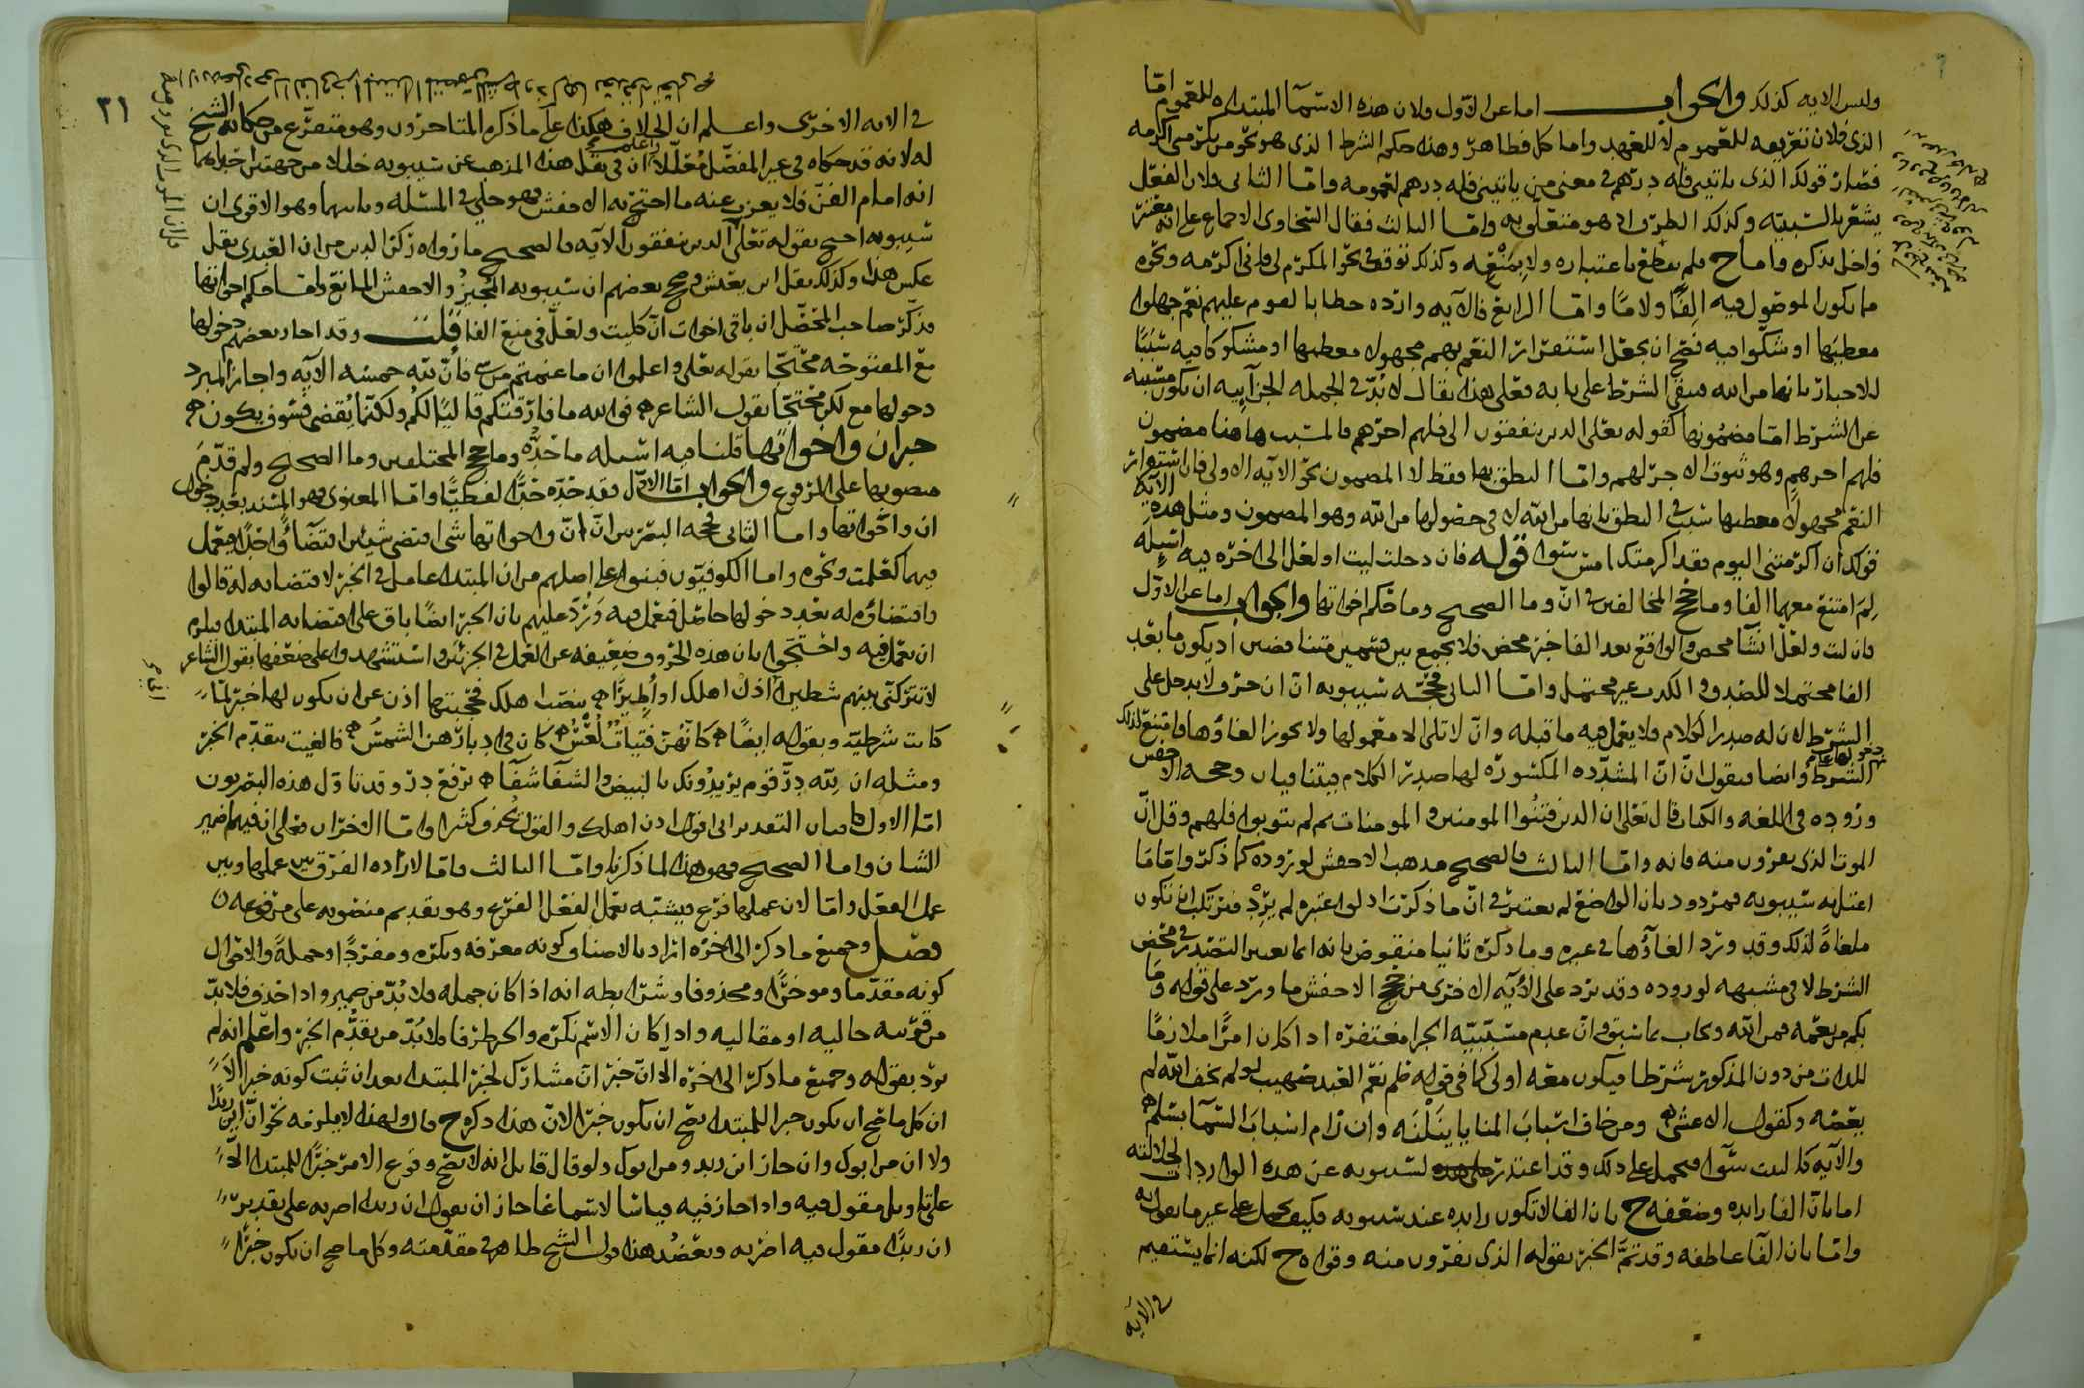 وليس الايه كذلك والجواب اما عن الاول فلان هذه الاسما المبتداه للعموم اما
الذى فلان تعريفه للعموم لا للعهد واما كل فظاهر وهذا حكم الشرط الذى هو نحو من يكرمنى اكرمه
فصار قولك الذى ياتينى فله درهم فى معنى من ياتينى فله درهم لعمومه واما الثانى فلان الفعل
يشعر بالسببيه وكذلك الظرف اذ هو متعلق به واما الثالث فقال السخاوى الاجماع على انه مغتفر
ما يكون الموصول فيه الفا ولاما واما الرابع فالآيه وارده خطابا لقوم عليهم نعم جهلوا
معطيها او شكوا فيه فصح ان يجعل استقرار النعم بهم مجهوله معطيها او مشكوكا فيه سببا
للاخبار بانها من الله فبقى الشرط على بابه فعلى هذا يقال لابد فى الجمله الجزائيه ان تكون مسببه
عن الشرط اما مضمونها كقوله تعلى الذين ينفقون الى فلهم اجرهم فالمسبب هاهنا مضمون
فلهم اجرهم وهو ثبوت الاجر لهم واما النطق بها فقط لا المضمون نحو الآيه الاولى فان استقرار
النعم مجهولا معطيها سبب فى النطق بانها من الله لا فى حصولها من الله وهو المضمون ومثل هذه الآيه
قولك ان اكرمتنى اليوم فقد اكرمتك امس سوا قوله فان دخلت ليت او لعل الى اخره فيه اسئله
لم امتنع معهما الفا وما حجج المخالفين فى ان وما الصحيح وما حكم اخواتها والجواب اما عن الاول
فان ليت ولعل انشا محض والواقع بعد الفا خبر محض فلا يجمع بين قسمين متناقضين اذ يكون ما بعد
الفا محتملا للصدق والكذب غير محتمل واما الثانى فحجه سيبويه ان ان حرف لا يدخل على
الشرط لان له صدر الكلام فلا يعمل فيه ما قبله وان لا تلى الا معمولها ولا يجوز الغاؤها فامتنع لذلك
الشرط وايضا فنقول ان ان المشدده المكسوره لها صدر الكلام فيتنافيان وحجه الاخفش
وروده فى اللغه والكتاب قال تعلى ان الذين فتنوا المومنين والمومنات ثم لم يتوبوا فلهم وقل ان
الموت الذى تفرون منه فانه واما الثالث فالصحيح مذهب الاخفش لوروده كما ذكر واما ما
اعتل به سيبويه فمردود بان الواضع لم يعتبر فى ان ما ذكرت اذ لو اعتبره لم يرد
ملغاة لذلك وقد ورد الغاؤها فى غيره وما ذكره ثانيا منقوض بانه انما يعتبر التصدر فى محض
الشرط لا فى مشبهه لوروده وقد يرد على الآيه الاخرى من حجج الاخفش ما ورد على قوله وما
بكم من نعمه فمن الله ويجاب بما سبق وان عدم مسببيه الجزا مغتفره اذا كان امرا ملازما
للذات من دون المذكور شرطا فيكون معه اولى كما فى قوله عليلم نعم العبد صهيب لو لم يخف الله لم
يعصه وكقول الاعشى ومن خاف اسباب المنايا ينلنه وان رام اسباب السما بسلم
والآيه كما ليت سوا فتحمل على ذلك وقد اعتذر لسيبويه عن هذه الواردات
اما بان الفا زايده وضعفه ح بان الفا لا تكون زايده عند سيبويه فكيف يحمل على غير ما يقول به
واما بان الفا عاطفه وقد تم الخبر بقوله الذى تفرون منه وقواه ح لكنه انما يستقيم
فى الآيه
٣١
فى الايه الاخرى واعلم ان الخلاف هكذا على ما ذكره المتاخرون وهو متفرع من حكايه الشيخ
له لانه قد حكاه فى غير المفصل معللا واعلم ان فى نقل هذا المذهب عن سيبويه خللا من جهتين احداهما
انه امام الفن فلا يعزب عنه ما احتج به الاخفش وهو جلى فى المسئله وثانيهما وهو الاقوى ان
سيبويه احتج بقوله تعلى الذين ينفقون الآيه فالصحيح ما رواه ركن الدين من ان العبدى نقل
عكس هذا وكذلك نقل ابن يعيش وصحح بعضهم ان سيبويه المجيز والاخفش المانع واما حكم اخواتها
فذكر صاحب المحصل ان باقى اخوات ان كليت ولعل فى منع الفا قلت وقد اجاز بعضهم دخولها
مع المفتوحه محتجا بقوله تعلى واعلموا ان ما غنمتم من شى فان لله خمسه الآيه واجاز المبرد
دخولها مع لكن محتجا بقول الشاعر فوالله ما فارقتكم قاليا لكم ولكن ما يقضى فسوف يكون
خبر ان واخواتها قلنا فيه اسئله ما حده وما حجج المختلفين وما الصحيح ولم قدم
منصوبها على المرفوع والجواب اما الاول فقد حده حدا لفظيا واما المعنوى فهو المسند بعد دخول
ان واخواتها واما الثانى فحجه البصريين ان ان واخواتها شى اقتضى شيئين اقتضاء واحدا فعمل
فيهما كعلمت ونحوه واما الكوفيون فبنوا على اصلهم من ان المبتدا عامل فى الخبر لاقتضايه له قالوا
واقتضاؤه له بعد دخولها حاصل فيعمل فيه ورد عليهم بان الخبر ايضا باق على اقتضايه المبتدا فيلزم
ان يعمل فيه واحتجوا بان هذه الحروف ضعيفه عن العمل فى الجزئين واستشهدوا على ضعفها بقول الشاعر
لا تتركنى بينهم شطيرا اذن اهلك او اطيرا بنصب اهلك فحجبتها اذن عن ان يكون لها خبر لما
كانت شرطيه وبقوله ايضا كانهن فتيات لعس كان فى ادبارهن الشمس فالغيت بتقدم الخبر
ومثله ان لله در قوم يريدونك بالبيض والشفا شفا برفع در وقد تاول هذه البصريون
اما الاول فبان التقدير انى اقول اذن اهلك والقول يحذف كثيرا واما الآخران فعلى ان فيهما ضمير
الشان واما الصحيح فهو هذا لما ذكرنا واما الثالث فاما لاراده الفرق بين عملها وبين
عمل الفعل واما لان عملها فرع فيشبه بعمل الفعل الفرع وهو تقديم منصوبه على مرفوعه
فصل وجميع ما ذكر الى اخره اراد بالاصناف كونه معرفه ونكره ومفردا وجملة والاحوال
كونه مقدما وموخرا ومحذوفا وشرايطه انه اذا كان جمله فلا بد من ضمير واذا حذف فلا بد
من قرينه حاليه او مقاليه واذا كان الاسم نكره والخبر ظرفا فلا بد من تقدم الخبر واعلم انه لم
يرد بقوله وجميع ما ذكر الى اخره الا ان خبر ان مشارك لخبر المبتدا بعد ان ثبت كونه خبرا لا
ان كل ما صح ان يكون خبرا للمبتدا يصح ان يكون خبرا لان هذا ذكره ح قال ولهذا لا يلزمه نحو ان اين زيدا
ولا ان من ابوك وان جاز اين زيد ومن ابوك ولو قال قايل انه لا يصح وقوع الامر خبرا للمبتدا الا
على تاويل مقول فيه واذا جاز فيه قياسا لا سماعا جاز ان يقول ان زيدا اضربه على تقدير
ان زيدا مقول فيه اضربه ويعضد هذا قول الشيخ طاهر فى مقدمته وكل ما صح ان يكون خبرا